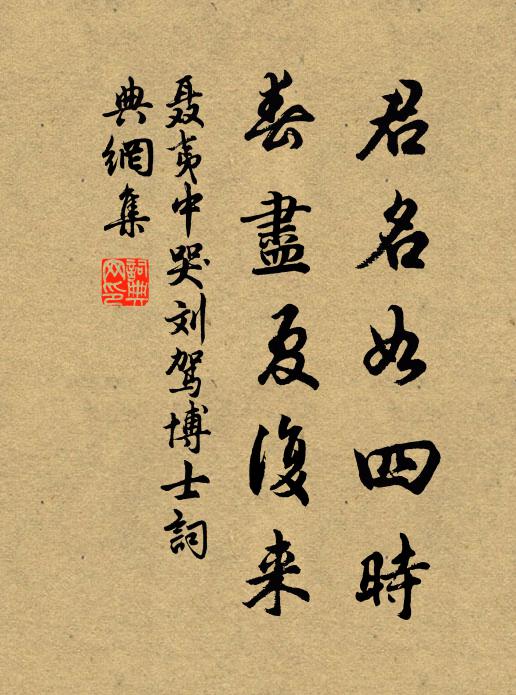 君名如四時
春盡夏復来
聂夷中哭刘驾博士詞
典網集
詞典网印